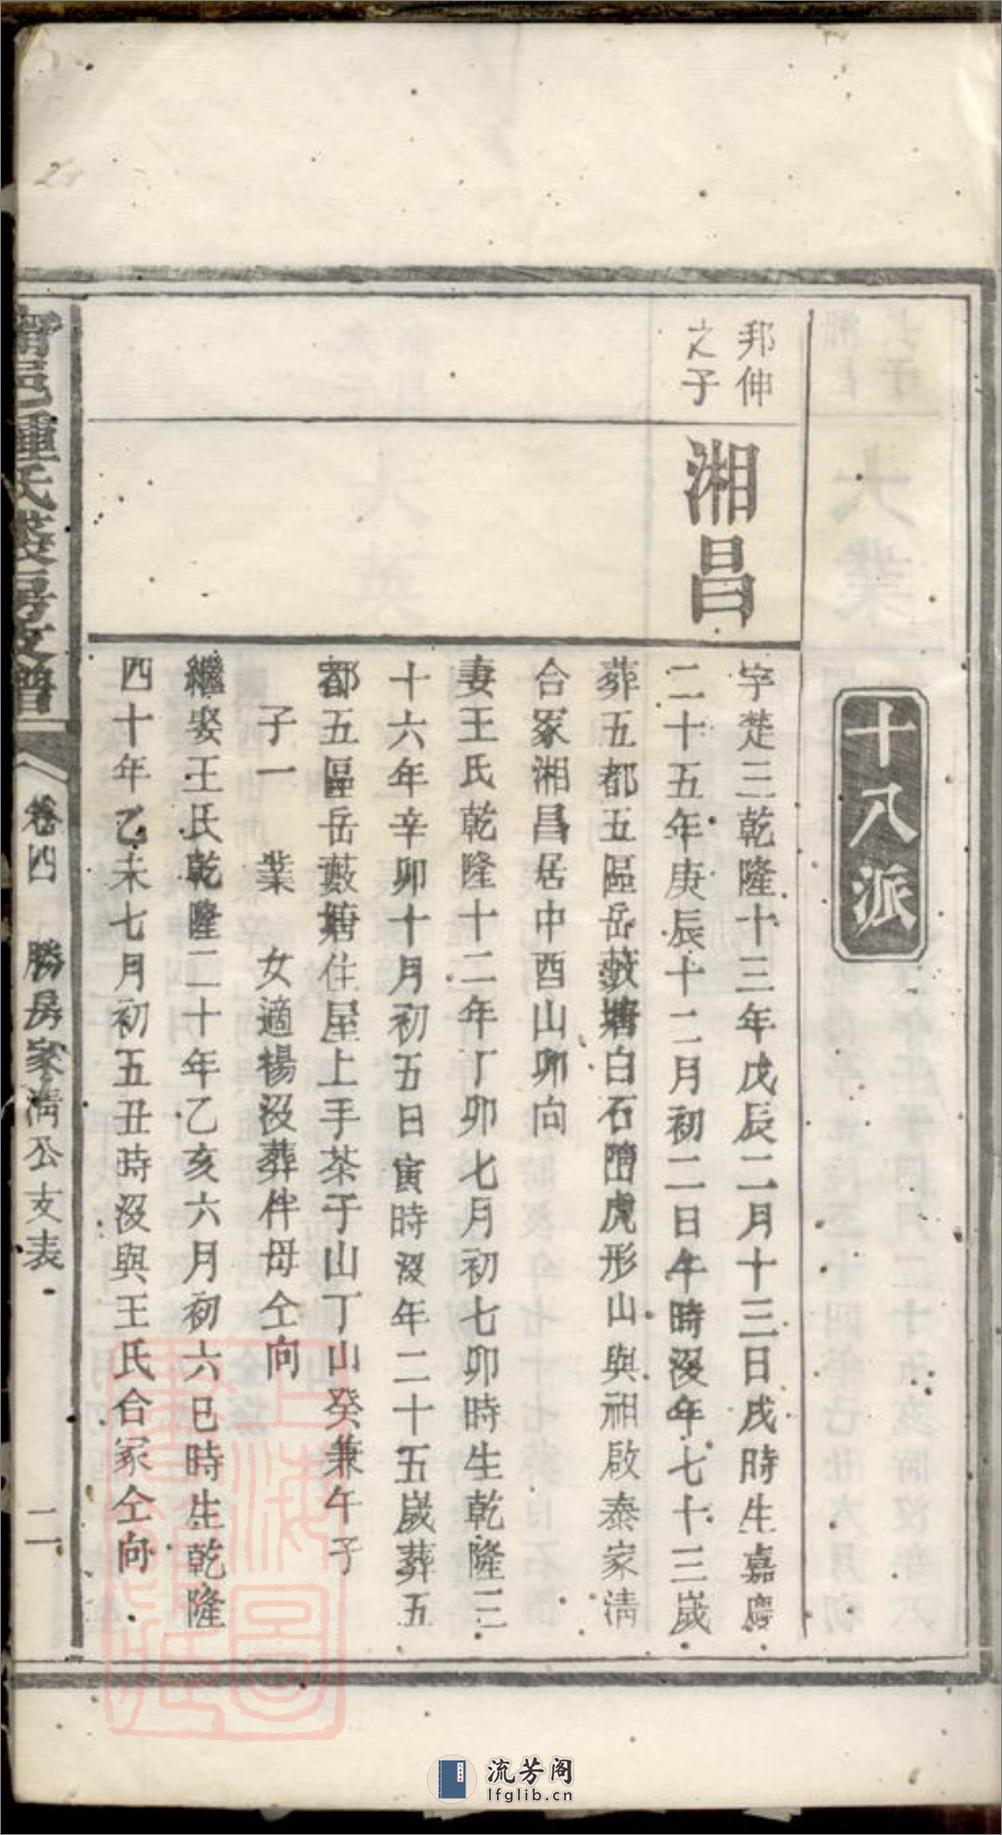 十八派
邦伸
之子
湘昌
字楚三乾隆十三年戊辰二月十三日戌時生嘉慶
二十五年庚辰十二月初二日午時沒年七十三歲
葬五都五區岳藪塘白石磖虎形山與祖啟泰家清
合冢湘昌居中酉山卯向
妻王氏乾隆十二年丁卯七月初七卯時生乾隆三
十六年辛卯十月初五日寅時沒年二十五歲葬五
都五區岳藪塘住屋上手茶子山丁山癸兼午子
子一 業 女適楊沒葬伴母仝向
繼娶王氏乾隆二十年乙亥六月初六巳時生乾隆
四十年乙未七月初五丑時沒與王氏合冢仝向
甯邑鍾氏菱房支譜
卷四 勝房家清公支表 二
上海圖書館藏
流芳阁
lfglib.cn